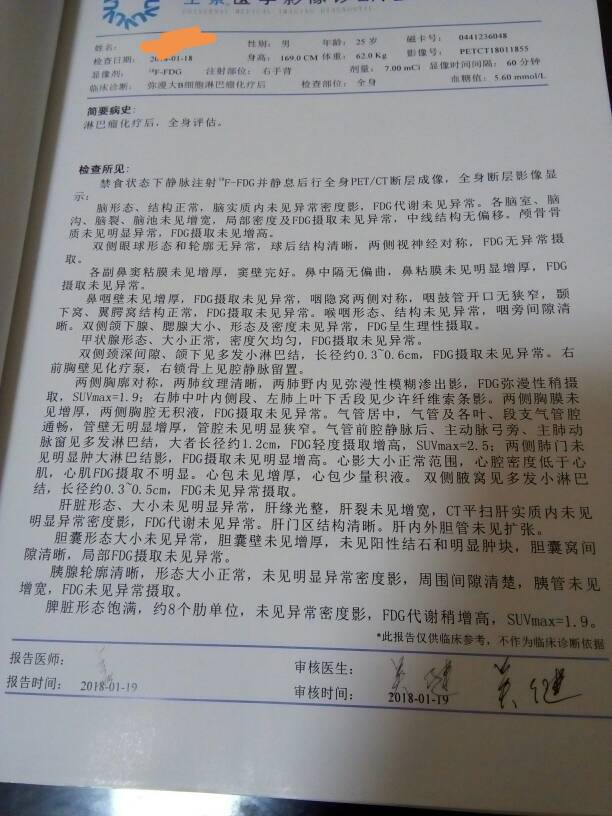 姓名： 性别： 男 年龄： 25 岁 磁卡号： 0441236048
检查日期： 2018-01-18 身高： 169.0 CM 体重： 62.0 Kg 影像号： PETCT18011855
显像剂： ¹⁸F-FDG 注射部位： 右手背 剂量： 7.00 mCi 显像时间间隔： 60 分钟
临床诊断： 弥漫大B细胞淋巴瘤化疗后 检查部位： 全身 血糖值： 5.60 mmol/L
简要病史：
淋巴瘤化疗后，全身评估。
检查所见：
禁食状态下静脉注射¹⁸F-FDG并静息后行全身PET/CT断层成像，全身断层影像显
示：
脑形态、结构正常，脑实质内未见异常密度影，FDG代谢未见异常。各脑室、脑
沟、脑裂、脑池未见增宽，局部密度及FDG摄取未见异常，中线结构无偏移。颅骨骨
质未见明显异常，FDG摄取未见增高。
双侧眼球形态和轮廓无异常，球后结构清晰，两侧视神经对称，FDG无异常摄
取。
各副鼻窦粘膜未见增厚，窦壁完好。鼻中隔无偏曲，鼻粘膜未见明显增厚，FDG
摄取未见异常。
鼻咽壁未见增厚，FDG摄取未见异常，咽隐窝两侧对称，咽鼓管开口无狭窄，颞
下窝、翼腭窝结构正常，FDG摄取未见异常。喉咽形态、结构未见异常，咽旁间隙清
晰。双侧颌下腺、腮腺大小、形态及密度未见异常，FDG呈生理性摄取。
甲状腺形态、大小正常，密度欠均匀，FDG摄取未见异常。
双侧颈深间隙、颌下见多发小淋巴结，长径约0.3~0.6cm，FDG摄取未见异常。右
前胸壁见化疗泵，右锁骨上见腔静脉留置。
两侧胸廓对称，两肺纹理清晰，两肺野内见弥漫性模糊渗出影，FDG弥漫性稍摄
取，SUVmax=1.9；右肺中叶内侧段、左肺上叶下舌段见少许纤维索条影。两侧胸膜未
见增厚，两侧胸腔无积液，FDG摄取未见异常。气管居中，气管及各叶、段支气管腔
通畅，管壁无明显增厚，管腔未见明显狭窄。气管前腔静脉后、主动脉弓旁、主肺动
脉窗见多发淋巴结，大者长径约1.2cm，FDG轻度摄取增高，SUVmax=2.5；两侧肺门未
见明显肿大淋巴结影，FDG摄取未见明显增高。心影大小正常范围，心腔密度低于心
肌，心肌FDG摄取不明显。心包未见增厚，心包少量积液。双侧腋窝见多发小淋巴
结，长径约0.3~0.5cm，FDG未见异常摄取。
肝脏形态、大小未见明显异常，肝缘光整，肝裂未见增宽，CT平扫肝实质内未见
明显异常密度影，FDG代谢未见异常。肝门区结构清晰。肝内外胆管未见扩张。
胆囊形态大小未见异常，胆囊壁未见增厚，未见阳性结石和明显肿块，胆囊窝间
隙清晰，局部FDG摄取未见异常。
胰腺轮廓清晰，形态大小正常，未见明显异常密度影，周围间隙清楚，胰管未见
增宽，FDG未见异常摄取。
脾脏形态饱满，约8个肋单位，未见异常密度影，FDG代谢稍增高，SUVmax=1.9。
*此报告仅供临床参考，不作为临床诊断依据
报告医师： 审核医生：
报告时间： 2018-01-19 审核时间： 2018-01-19